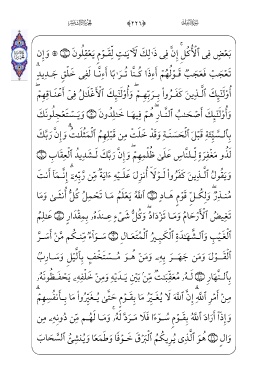 بَعْضٍ فِى ٱلْأُكُلِ إِنَّ فِى ذَٰلِكَ لَءَايَٰتٍ لِّقَوْمٍ يَعْقِلُونَ ۞ وَإِن
تَعْجَبْ فَعَجَبٌ قَوْلُهُمْ أَءِذَا كُنَّا تُرَٰبًا أَءِنَّا لَفِى خَلْقٍ جَدِيدٍ
أُو۟لَٰٓئِكَ ٱلَّذِينَ كَفَرُوا۟ بِرَبِّهِمْ وَأُو۟لَٰٓئِكَ ٱلْأَغْلَٰلُ فِىٓ أَعْنَاقِهِمْ
وَأُو۟لَٰٓئِكَ أَصْحَٰبُ ٱلنَّارِ هُمْ فِيهَا خَٰلِدُونَ وَيَسْتَعْجِلُونَكَ
بِٱلسَّيِّئَةِ قَبْلَ ٱلْحَسَنَةِ وَقَدْ خَلَتْ مِن قَبْلِهِمُ ٱلْمَثُلَٰتُ وَإِنَّ رَبَّكَ
لَذُو مَغْفِرَةٍ لِّلنَّاسِ عَلَىٰ ظُلْمِهِمْ وَإِنَّ رَبَّكَ لَشَدِيدُ ٱلْعِقَابِ
وَيَقُولُ ٱلَّذِينَ كَفَرُوا۟ لَوْلَآ أُنزِلَ عَلَيْهِ ءَايَةٌ مِّن رَّبِّهِۦٓ إِنَّمَآ أَنتَ
مُنذِرٌ وَلِكُلِّ قَوْمٍ هَادٍ ٱللَّهُ يَعْلَمُ مَا تَحْمِلُ كُلُّ أُنثَىٰ وَمَا
تَغِيضُ ٱلْأَرْحَامُ وَمَا تَزْدَادُ وَكُلُّ شَىْءٍ عِندَهُۥ بِمِقْدَارٍ عَٰلِمُ
ٱلْغَيْبِ وَٱلشَّهَٰدَةِ ٱلْكَبِيرُ ٱلْمُتَعَالِ سَوَآءٌ مِّنكُم مَّنْ أَسَرَّ
ٱلْقَوْلَ وَمَن جَهَرَ بِهِۦ وَمَنْ هُوَ مُسْتَخْفٍۭ بِٱلَّيْلِ وَسَارِبٌۢ
بِٱلنَّهَارِ لَهُۥ مُعَقِّبَٰتٌ مِّنۢ بَيْنِ يَدَيْهِ وَمِنْ خَلْفِهِۦ يَحْفَظُونَهُۥ
مِنْ أَمْرِ ٱللَّهِ إِنَّ ٱللَّهَ لَا يُغَيِّرُ مَا بِقَوْمٍ حَتَّىٰ يُغَيِّرُوا۟ مَا بِأَنفُسِهِمْ
وَإِذَآ أَرَادَ ٱللَّهُ بِقَوْمٍ سُوٓءًا فَلَا مَرَدَّ لَهُۥ وَمَا لَهُم مِّن دُونِهِۦ مِن
وَالٍ هُوَ ٱلَّذِى يُرِيكُمُ ٱلْبَرْقَ خَوْفًا وَطَمَعًا وَيُنشِئُ ٱلسَّحَابَ